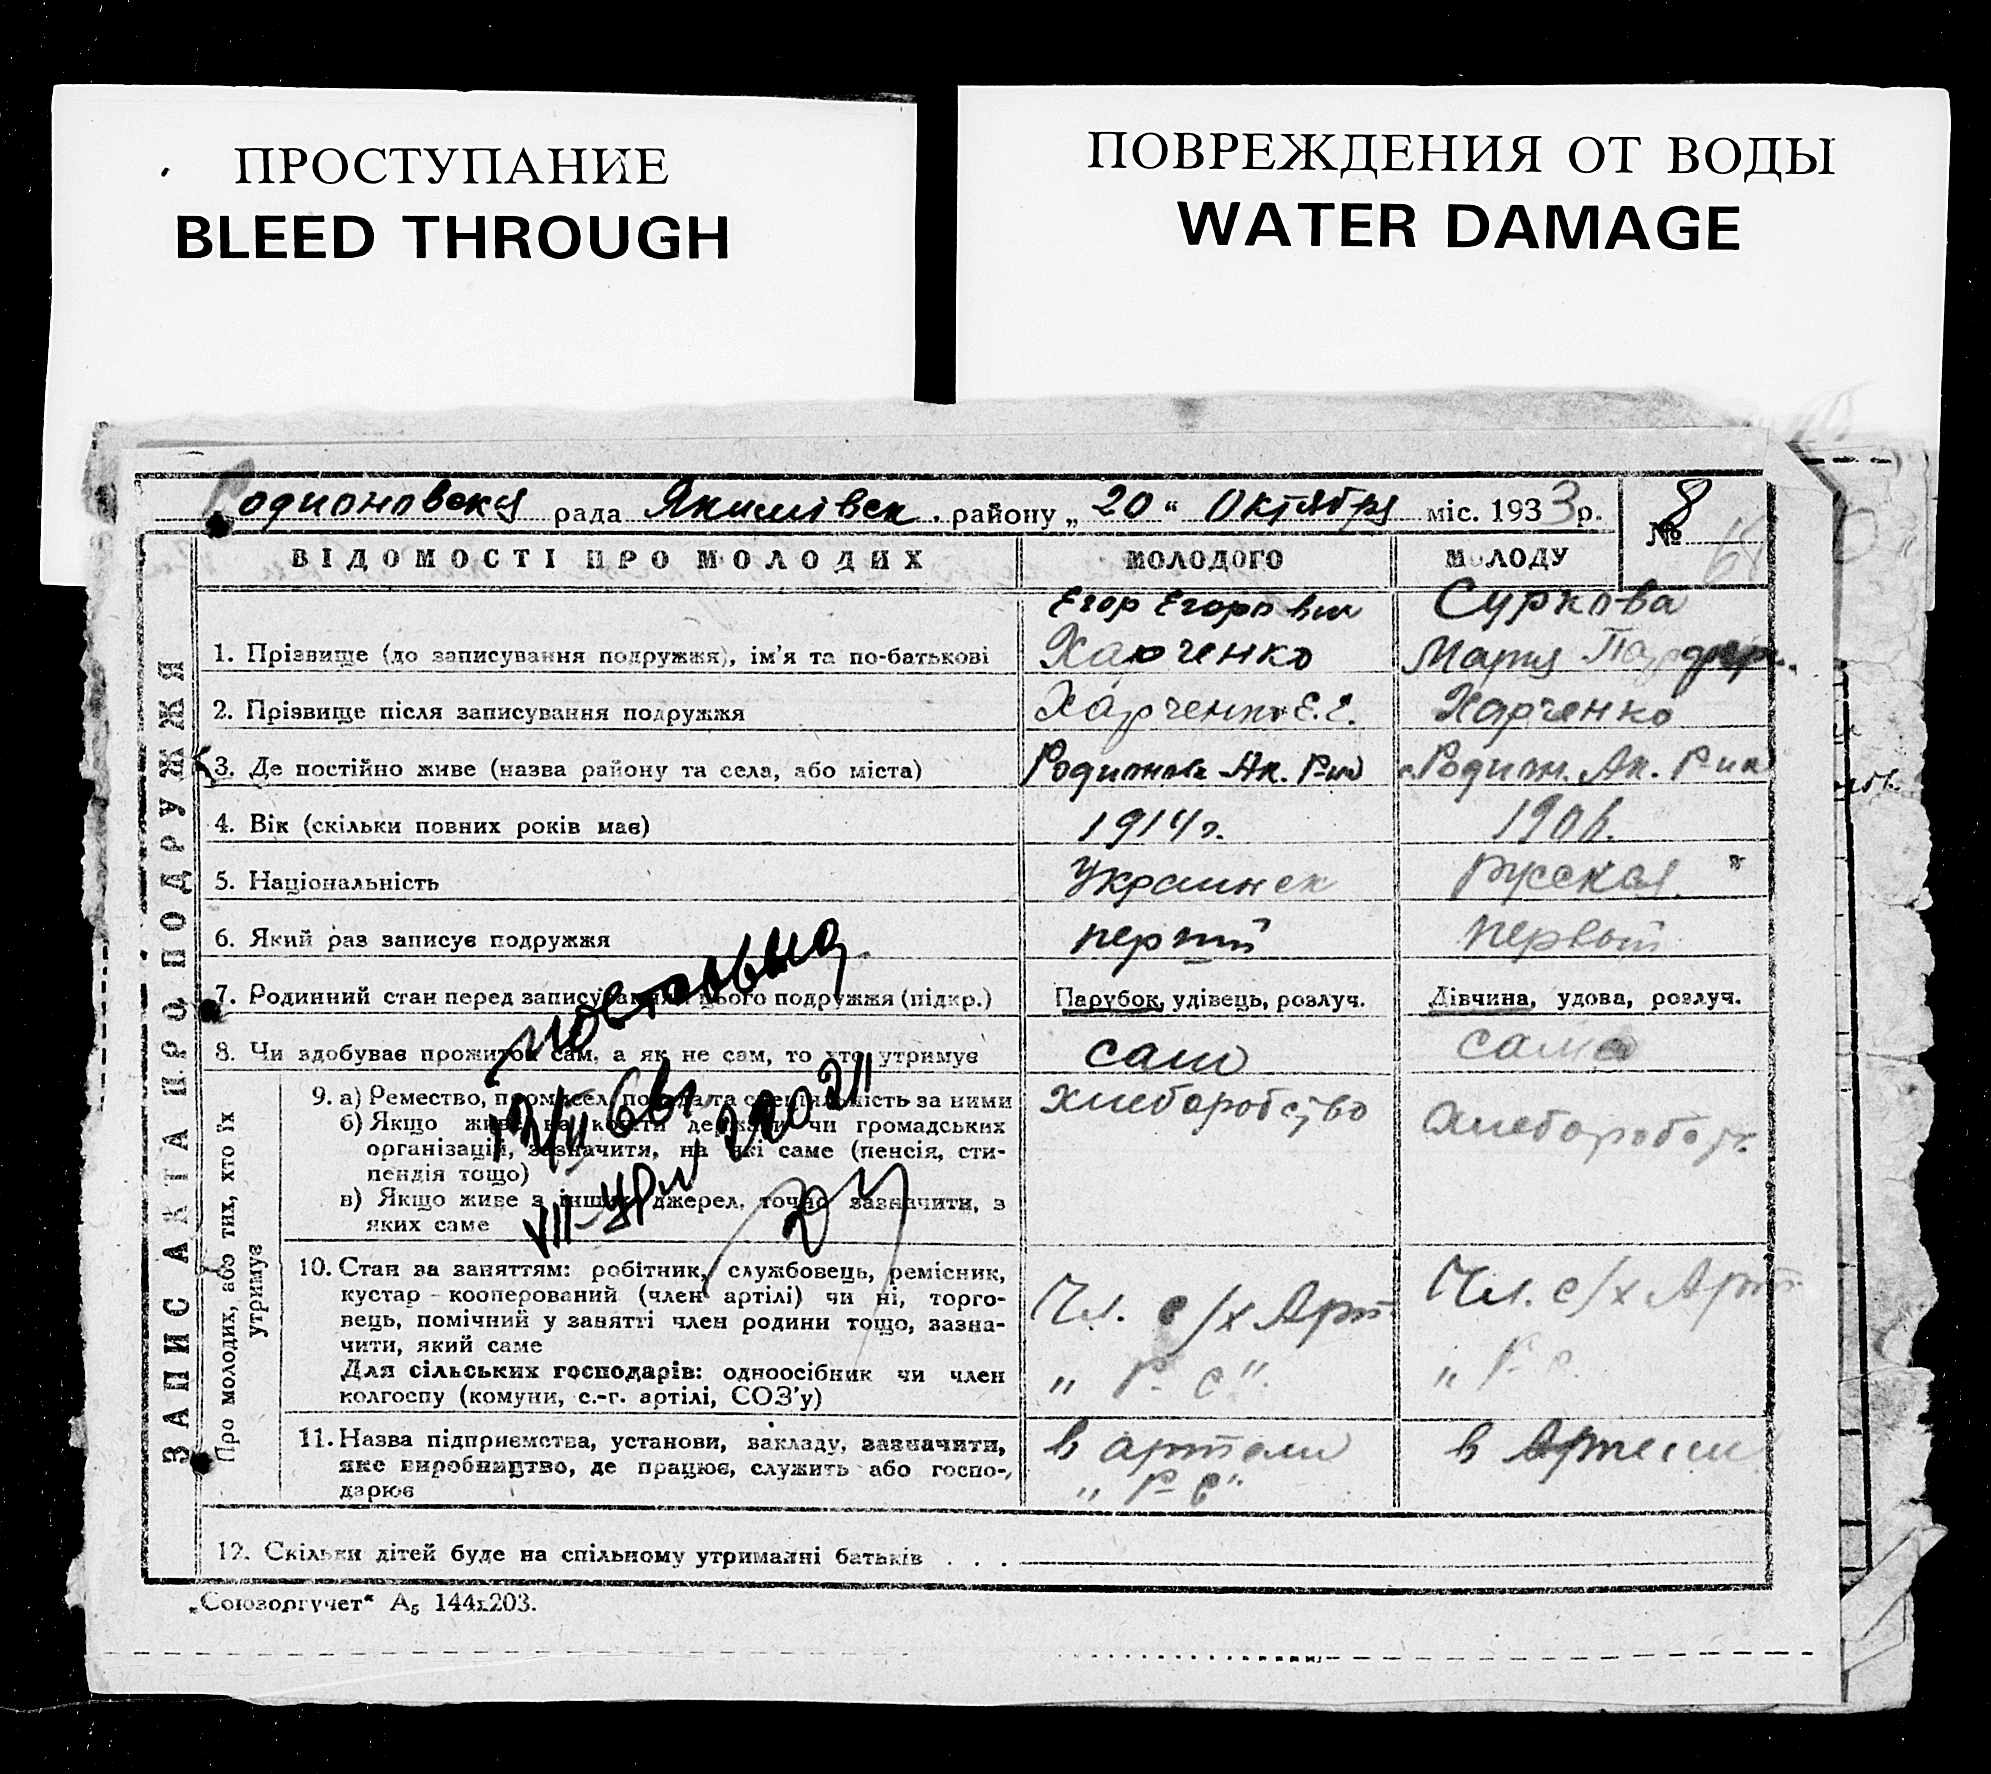 ПРОСТУПАНИЕ
BLEED THROUGH
ПОВРЕЖДЕНИЯ ОТ ВОДЫ
WATER DAMAGE
Родионовская рада Якимівск. району „20“ Октября міс. 1933 р.
№ 8
ВІДОМОСТІ ПРО МОЛОДИХ МОЛОДОГО МОЛОДУ
ЗАПИС АКТА ПРО ПОДРУЖЖЯ
1. Прізвище (до записування подружжя), ім'я та по-батькові
Егор Егорович
Харченко
Суркова
Мария
2. Прізвище після записування подружжя Харченко Е.Е. Харченко
3. Де постійно живе (назва району та села, або міста) Ак. Р-на Родион. Ак. Р-на
4. Вік (скільки повних років має) 1914 г. 1906.
5. Національність Украинец русская
6. Який раз записує подружжя первый
7. Родинний стан перед записуванням цього подружжя (підкр.) Парубок, удівець, розлуч. Дівчина, удова, розлуч.
8. Чи здобуває прожиток сам, а як не сам, то хто утримує сам сама
Про молодих, або тих, хто їх
утримує
9. а) Ремество, промисел, посада та спеціяльність за ними хлеборобство
б) Якщо живе на кошти держави чи громадських
організацій, зазначити, на які саме (пенсія, сти-
пендія тощо)
в) Якщо живе з інших джерел, точно зазначити, з
яких саме
10. Стан за заняттям: робітник, службовець, ремісник,
кустар - кооперований (член артілі) чи ні, торго-
вець, помічний у занятті член родини тощо, зазна-
чити, який саме
Для сільських господарів: одноосібник чи член
колгоспу (комуни, с.-г. артілі, СОЗ'у)
Чл. с/х Арт.
Чл. с/х Арт.
11. Назва підприємства, установи, закладу, зазначити,
яке виробництво, де працює, служить або госпо-
дарює
в артели
в Артели
12. Скільки дітей буде на спільному утриманні батьків . . .
„Союзоргучет“ А₅ 144х203.